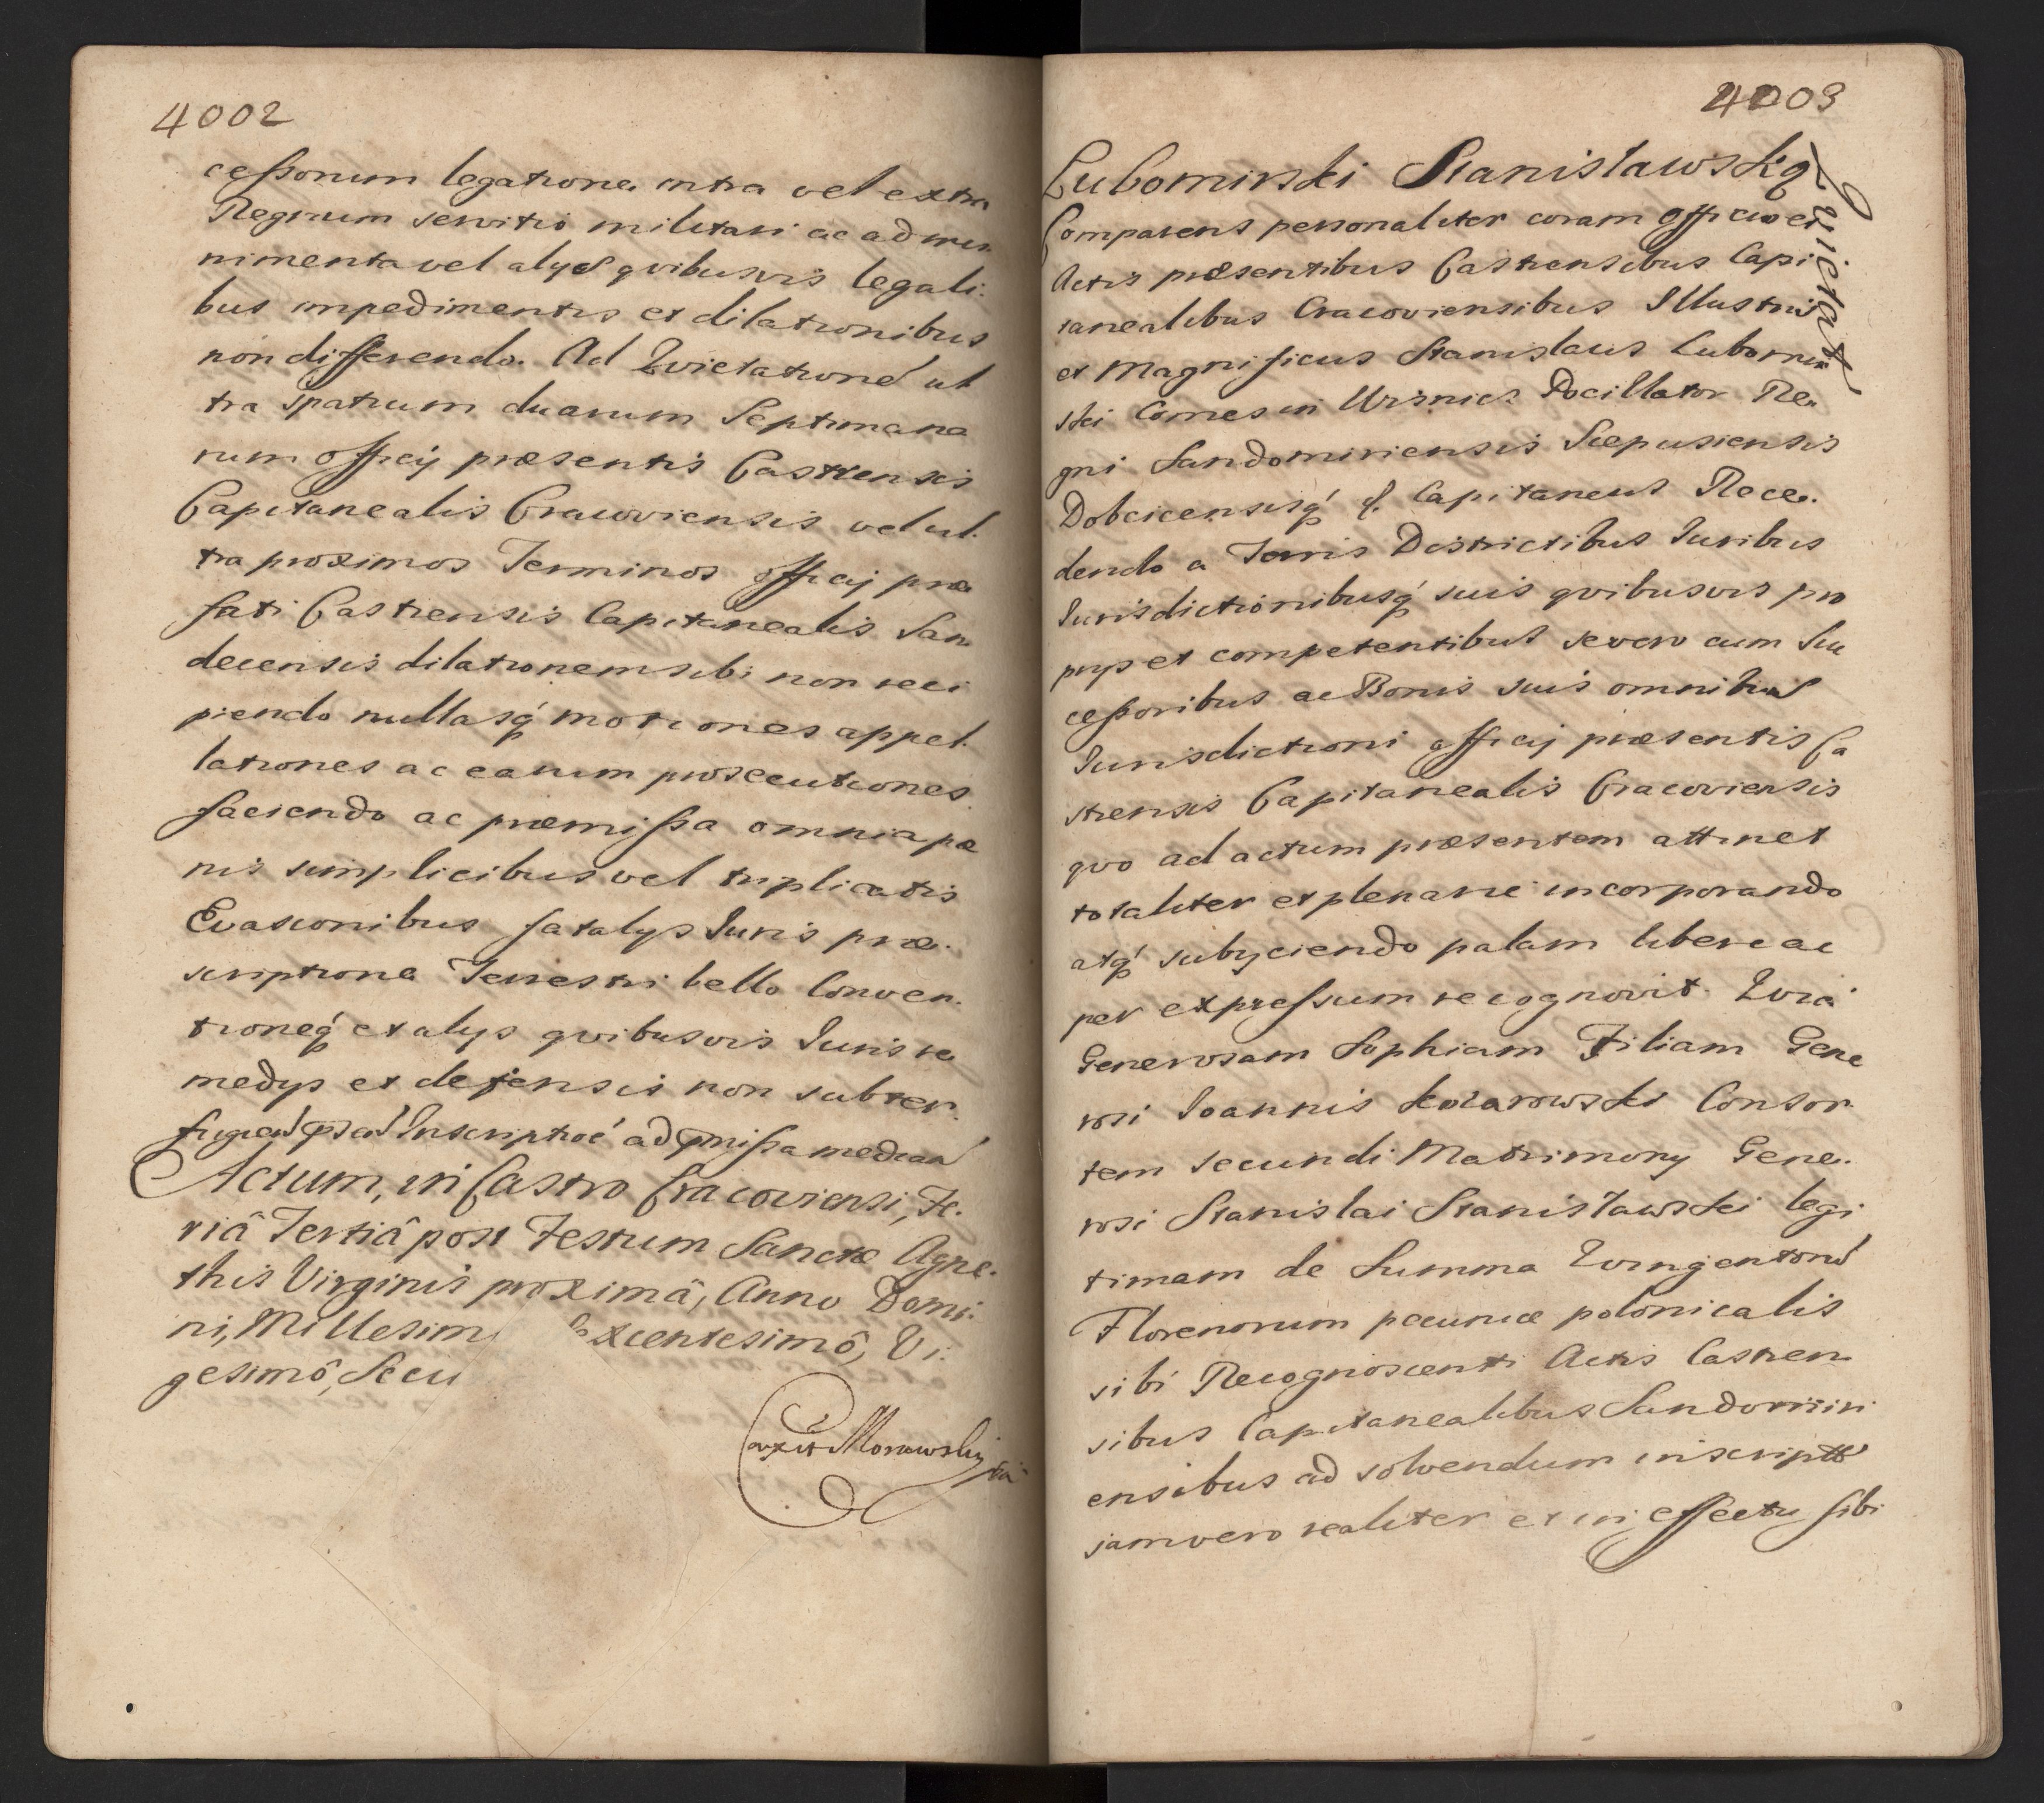 4002
cessorum legatione intra vel extra
Regnum servitio militari ac ad mu
nimenta vel alys quibusvis legali.
bus impedimentis et dilationibus
non differendo. Ad Qvietationé ul
tra spatium duarum Septimana
rum officij præsentis Castrensis
Capitanealis Cracoviensis vel ul.
tra proximos Terminos officij præ
fati Castrensis Capitanealis San
decensis dilationem sibi non reci
piendo nullasq́ motiones appel.
lationes ac earum prosecutiones
faciendo ac præmissa omnia pœ
nis simplicibus vel triplicatis
Evasionibus fatalys Iuris præ.
scriptione Terrestri bello Conven.
tioneq́ et alys qvibusvis Iuris re
medys et defensis non subter.
fugien
Inscriptoé ad
Actum, in Castro Cracoviensi, Fe.
riâ Tertiâ post Festum Sanctæ Agne.
this Virginis proximâ, Anno Domi.
ni, Millesim excentesimô, Vi.
gesimô, Secu
Morawski
4003
Lubomirski Stanisławskiq
Qvietat
Comparens personaliter coram officio et
Actis præsentibus Castrensibus Capi
tanealibus Cracoviensibus Illustris
et Magnificus Stanislaus Lubomir
ski Comes in Wisnicz Pocillator Re
gni Sandomiriensis Scepusiensis
Dobcicensisq́ &. Capitaneus Rece.
dendo a Terris Districtibus Iuribus
Iurisdictionibusq́ suis qvibusvis pro
prys et competentibus se vero cum Suc
cessoribus ac Bonis suis omnibus
Iurisdictioni officij præsentis Ca
strensis Capitanealis Cracoviensis
qvo ad actum præsentem attinet
totaliter et plenarie incorporando
atq́ subyciendo palam libere ac
per expressum recognovit. Qvia
Generosam Sophiam Filiam Gene
rosi Ioannis Konarowski Consor
tem secundi Matrimony Gene.
rosi Stanislai Stanisławski legi
timam de Summa Qvingentorú
Florenorum pecuniæ polonicalis
sibi Recognoscenti Actis Castren
sibus Capitanealibus Sandomiri
ensibus ad solvendum inscripta
jam vero realiter et in effectu sibi